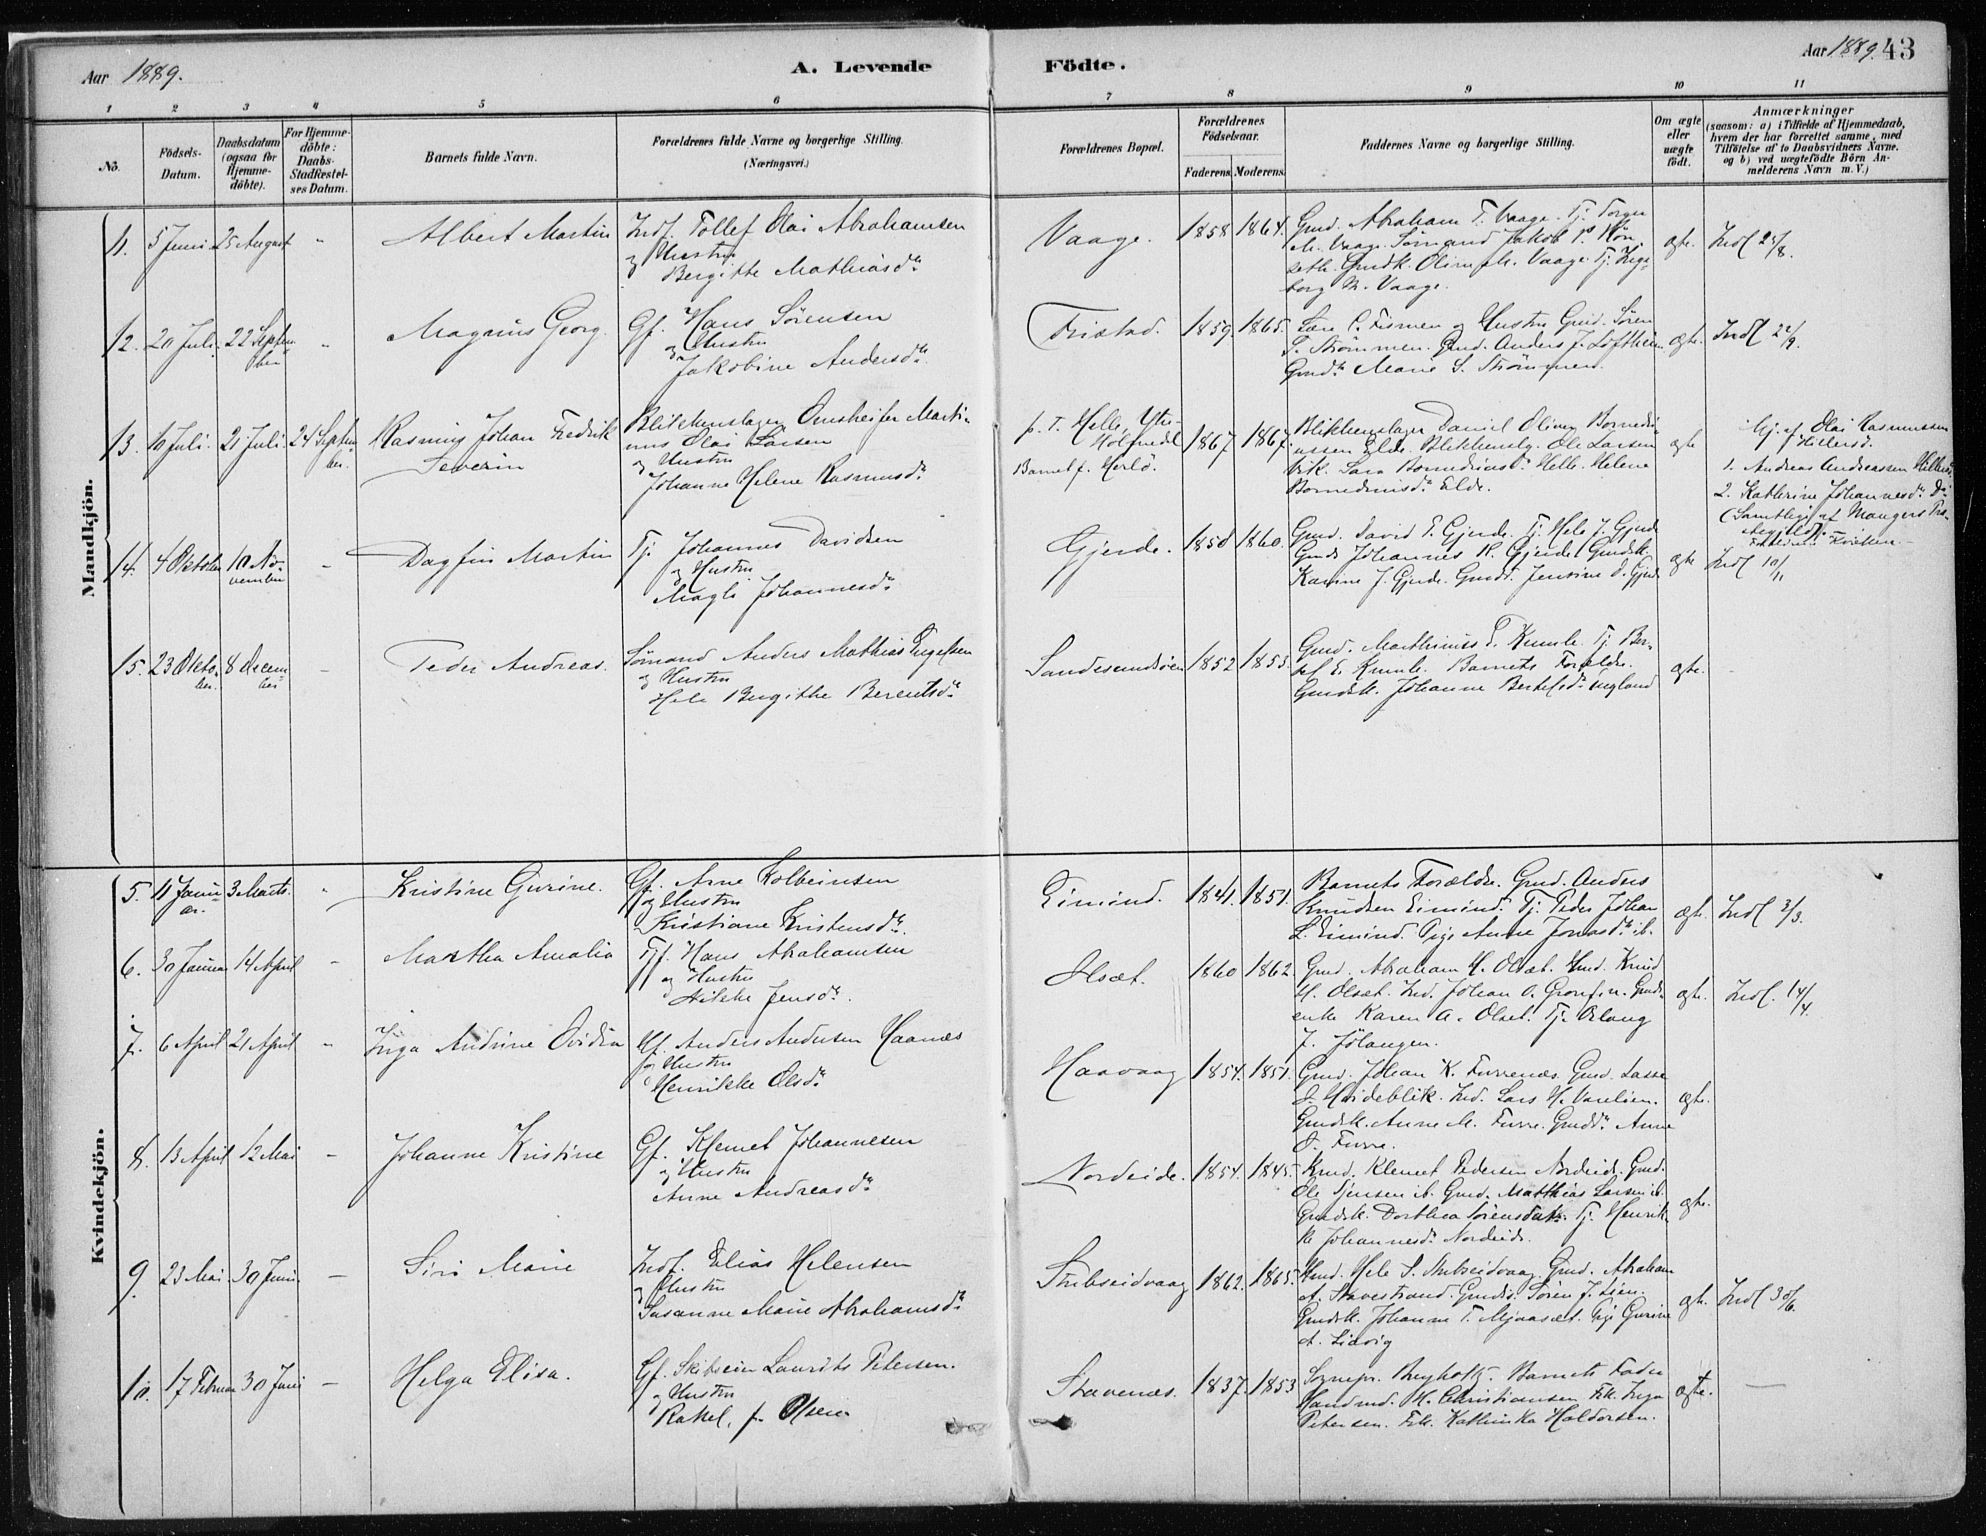 Aar 1889.
A. Levende Födte.
Aar 1889. 43
1 2 3 4 5 6 7 8 9 10 11
No.
Födsels-Datum.
Daabsdatum (ogsaa for Hjemme-döbte).
For Hjemme-döbte: Daabs-Stadfæstel-ses Datum.
Barnets fulde Navn.
Forældrenes fulde Navne og borgerlige Stilling.
(Næringsvei.)
Forældrenes Bopæl.
Forældrenes Födselsaar.
Faderens. Moderens.
Faddernes Navne og borgerlige Stilling.
Om ægte eller uægte födt.
Anmærkninger
(saasom: a) i Tilfælde af Hjemmedaab,
hvem der har forrettet samme, med
Tilföielse af to Daabsvidners Navne.
og b) ved uægtefödte Börn An-
melderens Navn m. V.)
Mandkjön.
11. 5 Juni 25 August " Albert Martin Indf. Tollef Olai Abrahamsen
og Hustru
Bergitte Mathiasdtr
Vaage. 1858 1864. Gmd. Abraham T. Vaage. Tj. Torger
M. Vaage. Sömand Jakob P.
Gmdk. Vaage. Tj. Inge-
borg M. Vaage.
ægte. Indl 25/8.
12. 20 Juli. 22 Septem-ber " Magnus Georg. Gf. Hans Sörensen
og Hustru
Jakobine Andersdtr.
1859. 1865. og Hustru Gmd. Sören
S. Strömmen. Gmd. Anders J.
Gmdtr Marie S. Strömmen.
ægte. Indl 22/9.
13. 10 Juli. 21 Juli. 24 Septem-ber. Rasmus Johan Fredrik
Severin
Blikkenslager Marti-
nus Olai Larsen
og Hustru
Johanne Helene Rasmusdtr
p. T. Helle, Ytre
Holmedal
Barnet f. Herlö.
1867 1867. Blikkenslager Daniel Oliver
Elde. Blikkenslg. Ole Larsen
Vik. Sara Helle. Helene
Elde.
ægte
Hj. af Olai Rasmussen
1. Andreas Andreassen
2. Kathrine Johannesdtr Do
(Samtlige af Mangers Præ-
14. 4 Oktober 10 No-vember - Dagfin Martin Tj. Johannes Davidsen
og Hustru
Magli Johannesdtr
Gjerde. 1850 1860. Gmd. David P. Gjerde. Tj. Hele J. Gjerde
Gmds Johannes H. Gjerde. Gmdsk.
Karine J. Gjerde. Gmdd. Jensine D. Gjerde
ægte Indl 10/11
15. 23 Okto-ber. 8 Decem-ber - Peder Andreas. Sömand Anders Mathias Engelsen
og Hustru
Hele Bergithe Berentsdtr
1852 1853. Gmd. Mathinus E. Kumle. Tj. Ber-
E. Kumle. Barnets Forældre.
Gmdsk. Johanne Bertelsdtr
ægte. -
Kvindekjön.
5. 11 Janu-ar. 3 Marts. " Kristine Gurine. Gf. Arne Kolbeinsen
og Hustru
Kristiane Kristensdtr.
Eimind. 1841. 1851. Barnets Forældre. Gmd. Anders
Knudsen Eimind. Tj. Peder Johan
L. Eimind. Pige Anne Jonasdtr ib.
ægt. Indl 3/3.
6. 30 Januar 14 April - Martha Amalia Tjf. Hans Abrahamsen
og Hustru
Jensdtr.
Olsæt. 1860 1862. Gmd. Abraham H. Olsæt. Gmd. Knud
H. Olsæt. Ind. Johan A. Gmds-
enke Karen A. Olset. Tj.
J.
ægte. Indl. 14/4.
7. 6 April 21 April " Inga Andrine Ovidia Gf. Anders Andersen Haanæs
og Hustru
Henrikke Olsdtr
Haavaag 1854. 1851. Gmd. Johan K. Furrenæs. Gmd. Lasse
J. Hvideblik. Ind. Lars H.
Gmdsk. Anne M. Furre. Gmddtr Anne
O. Furre.
ægte.
8. 13 April 12 Mai - Johanne Kristine Gf. Klemet Johannesen
og Hustru
Anne Andreasdtr
Nordeide. 1854. 1845. Kmd. Klemet Pedersen Nordeide. Gmd.
Ole Jensen ib. Gmd. Matthias Larsen ib.
Gmdsk. Dorthea Sörensdatr. Tj. Henrik-
ke Johannesdr Nordeide.
ægte.
9. 23 Mai 30 Juni. - Siri Marie Indf. Elias Helensen
og Hustru
Susanne Marie Abrahamsdtr
Stubseidvaag 1862. 1865. Gmd. Hele S. Stubseidvaag Gmd. Abraham
A. Stavestrand. Gmds. Sören J. Lien.
Gmdsk. Johanne T. Mjaasæt. Pige Gurine
A. Lidvig
ægt. Indl 30/6.
10. 17 Februar 30 Juni - Helga Elisa. Gf. Skibseier Laurits Petersen.
og Hustru
Rakel, f. Olsen
Stavenæs. 1837 1853 Sognepr. Barnets Fader
Handmd. H. Christiansen Frk. Inga
Petersen. Frk. Kathinka Haldorsen.
ægte. -